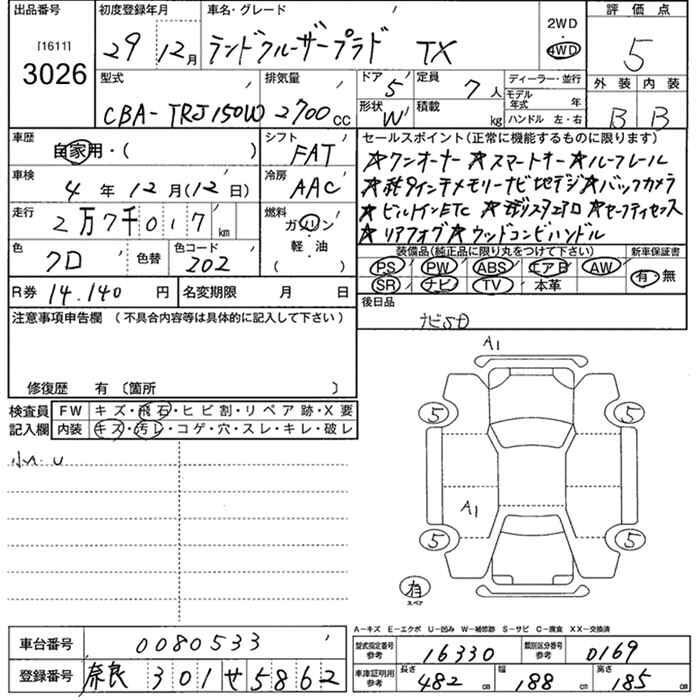 出品番号 初度登録年月 車名・グレード 2WD 評価点
[1611] 3026 29 12月 ランドクルーザープラド TX 4WD 5
型式 排気量 ドア 5 定員 7人 ディーラー・並行 外装 内装
CBA-TRJ150W 2700cc 形状 W 積載 kg モデル年式 年 ハンドル 左・右 B B
車歴 自家用・( ) シフト FAT セールスポイント(正常に機能するものに限ります)
☆ワンオーナー ☆スマートキー ☆ルーフレール
車検 4年12月(12日) 冷房 AAC
メモリーナビ地デジ ☆バックカメラ
走行 2万7千017km 燃料 ガソリン・軽・油 ( )
☆ビルトインETC
☆リアフォグ ☆ウッドコンビハンドル
色 クロ 色替 色コード 202 装備品(純正品に限り丸をつけて下さい) 新車保証書
PS PW ABS エアB AW 有・無
R券 14,140円 名変期限 月 日 SR ナビ TV 本革
注意事項申告欄 (不具合内容等は具体的に記入して下さい) 後日品
ナビSD
修復歴 有 〔箇所 〕
検査員 FW キズ・飛石・ヒビ割・リペア跡・X要
記入欄 内装 キズ・汚レ・コゲ・穴・スレ・キレ・破レ
小A.U
A1
5 5
A1
5 5
有
スペア
A−キズ E−エクボ U−凹み W−補修跡 S−サビ C−腐食 XX−交換済
車台番号 0080533 型式指定番号 参考 16330 類別区分番号 参考 0169
登録番号 奈良 301 せ 5862 車庫証明用 参考 長さ 482cm 幅 188cm 高さ 185cm